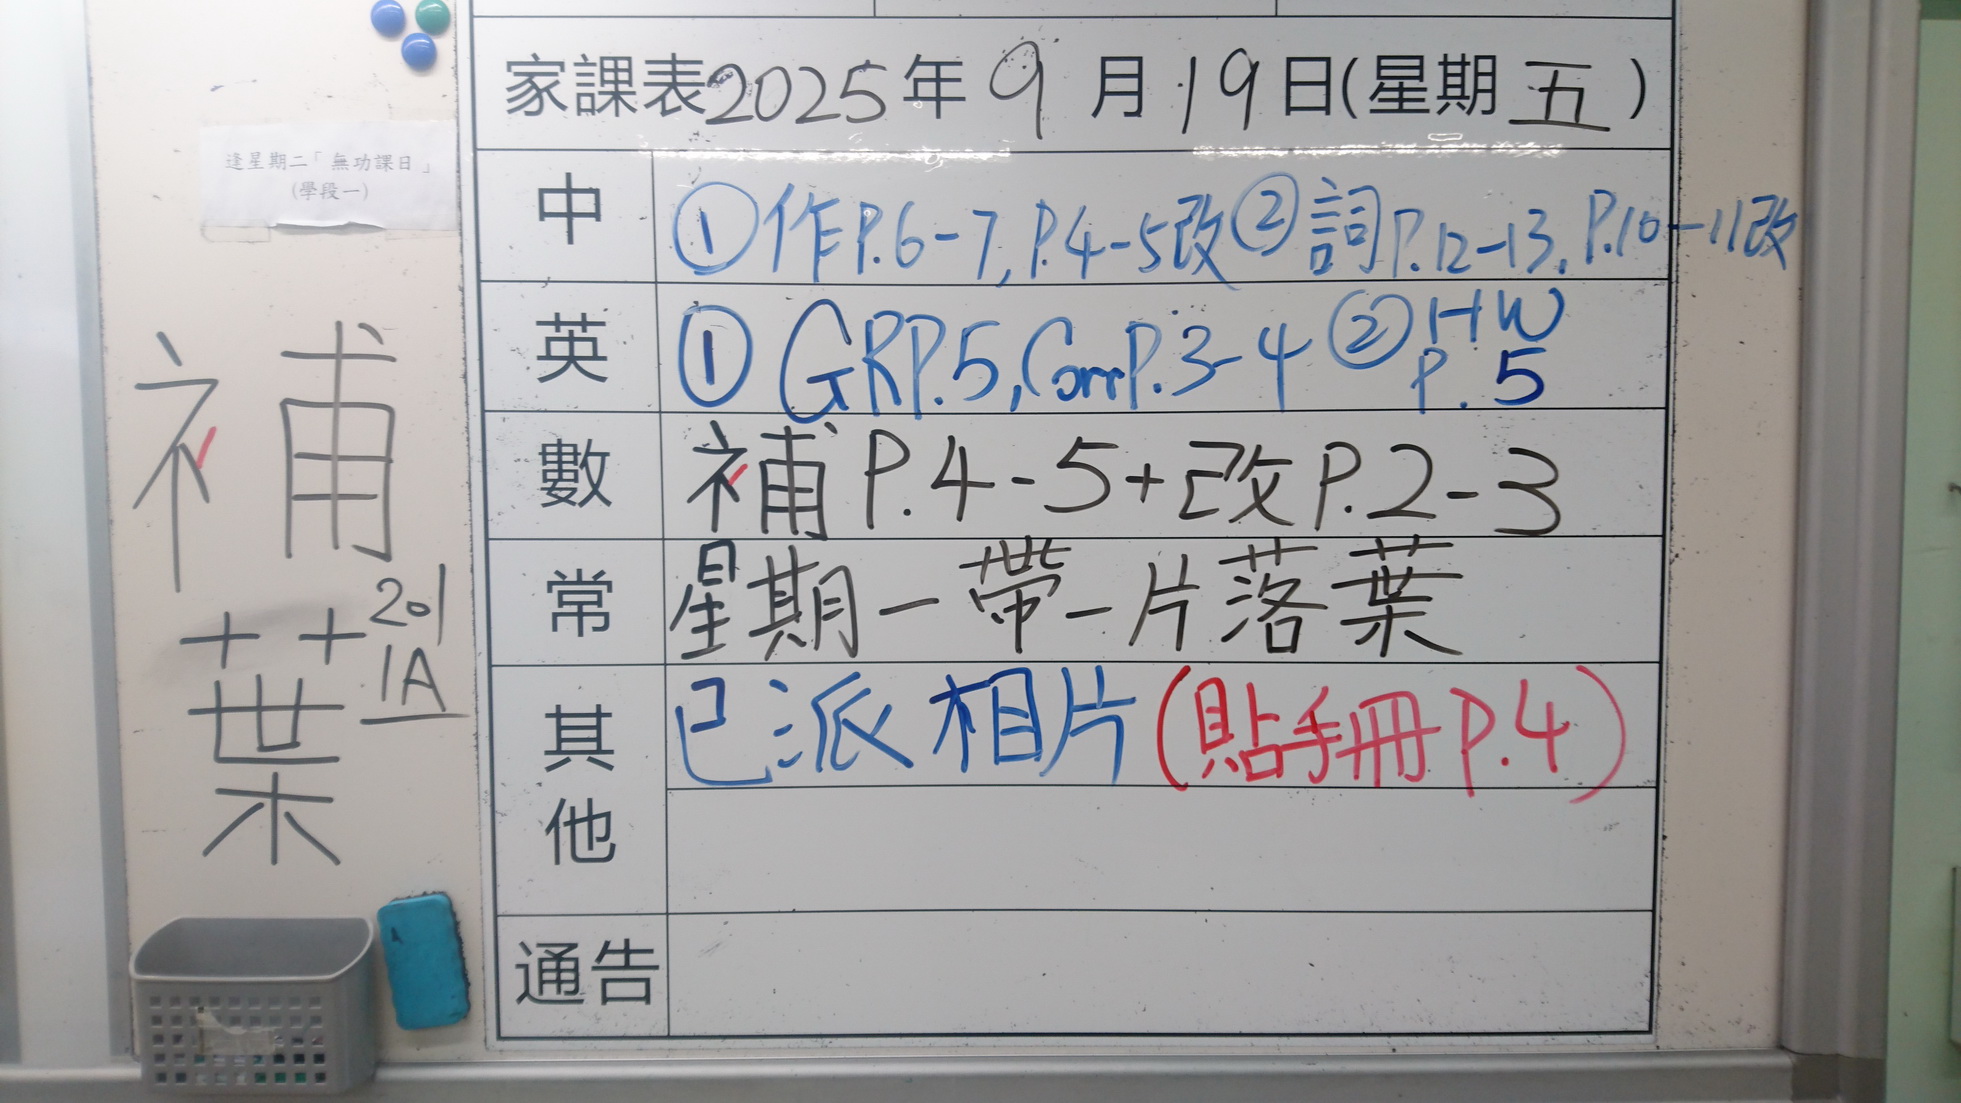 家課表2025年9月19日(星期五)
逢星期二「無功課日」
(學段一)
中
①作P.6-7,P.4-5改②詞P.12-13,P.10-11改
英
①GRP.5,CorrP.3-4②HW
P.5
數
補P.4-5+改P.2-3
常
星期一帶一片落葉
其他
已派相片(貼手冊P.4)
通告
補
葉
201
1A